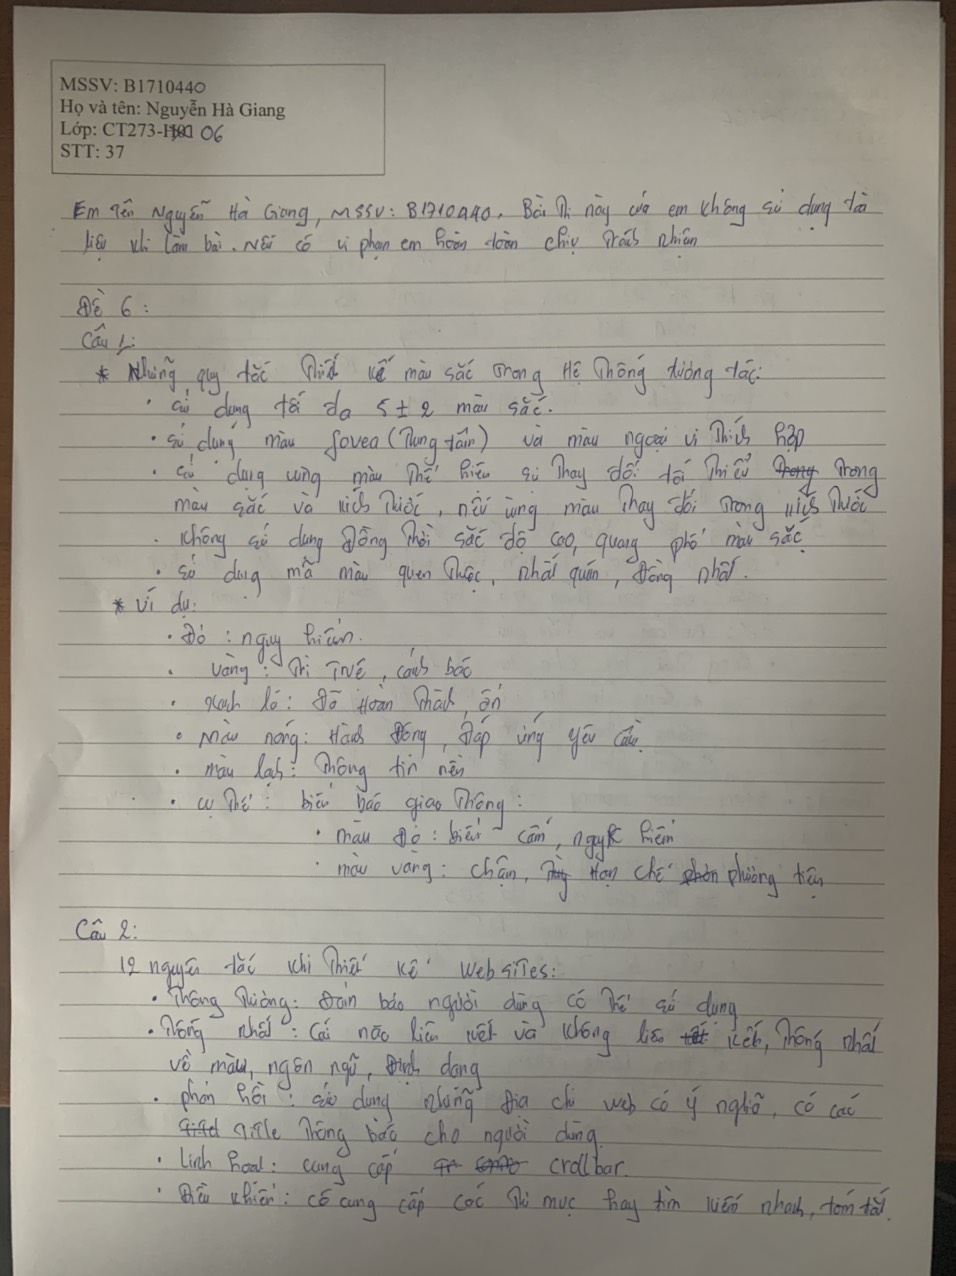 MSSV: B1710440
Họ và tên: Nguyễn Hà Giang
Lớp: CT273- 06
STT: 37
Em tên Nguyễn Hà Giang, MSSV: B1710440. Bài thi này của em không sử dụng tài
liệu khi làm bài. Nếu có vi phạm em hoàn toàn chịu trách nhiệm
Đề 6:
Câu 1:
* Những quy tắc thiết kế màu sắc trong Hệ thống tương tác:
· sử dụng tối đa 5 ± 2 màu sắc.
· sử dụng màu fovea (trung tâm) và màu ngoại vi thích hợp
· sử dụng vùng màu thể hiện sự thay đổi tối thiểu trong
màu sắc và kích thước, nếu vùng màu thay đổi trong kích thước
· không sử dụng đồng thời sắc độ cao, quang phổ màu sắc
· sử dụng mã màu quen thuộc, nhất quán, đồng nhất.
* Ví dụ:
· Đỏ: nguy hiểm.
· vàng: trì trệ, cảnh báo
· xanh lá: Đã Hoàn thành, ổn
· Màu nóng: Hành động, đáp ứng yêu cầu.
· màu lạnh: thông tin nền
· cụ thể: biển báo giao thông:
· màu Đỏ: biển cấm, nguy hiểm
· màu vàng: chậm, Hạn chế phương tiện
Câu 2:
12 nguyên tắc khi thiết kế websites:
· Thông thường: Đảm bảo người dùng có thể sử dụng
· Thống nhất: Cái nào liên kết và không liên kết, thống nhất
về màu, ngôn ngữ, định dạng
· phản hồi: sử dụng những địa chỉ web có ý nghĩa, có các
title thông báo cho người dùng.
· Linh hoạt: cung cấp crollbar.
· Điều khiển: có cung cấp các thư mục hay tìm kiếm nhanh, tóm tắt.